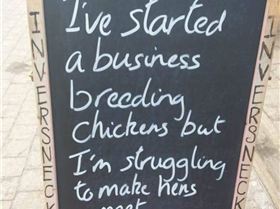 I've started
a business
breeding
chickens but
I'm struggling
to make hens
INVERSNECK
INVERSNECK